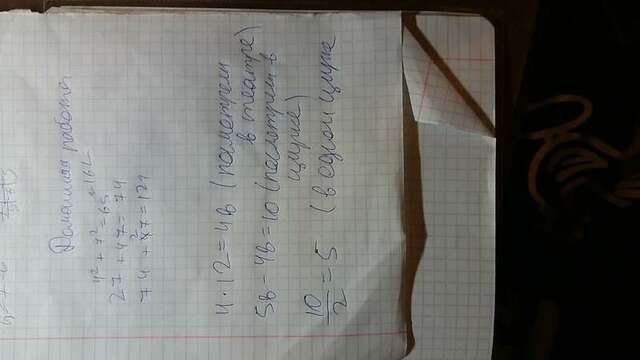 Домашняя работа
4² + 7² = 65
27 + 47 = 74
74 + 27 = 121
4 · 12 = 48 (посмотрели
в театре)
58 - 48 = 10 (посмотрели в
цирке)
10/2 = 5 (в одном цирке